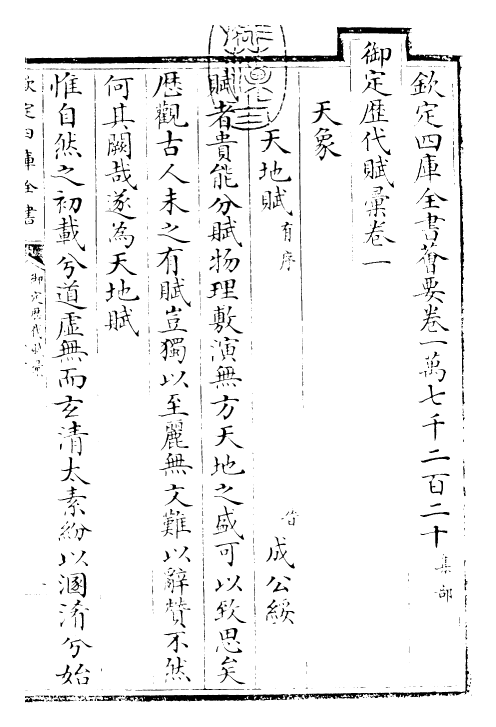 欽定四庫全書薈要卷一萬七千二百二十集部
御定歴代賦彙卷一
天象
天地賦有序 晉 成公綏
賦者貴能分賦物理敷演無方天地之盛可以致思矣
歴觀古人未之有賦豈獨以至麗無文難以辭贊不然
何其闕哉遂為天地賦
惟自然之初載兮道虛無而玄清太素紛以溷淆兮始
欽定四庫全書
御定歴代賦彙